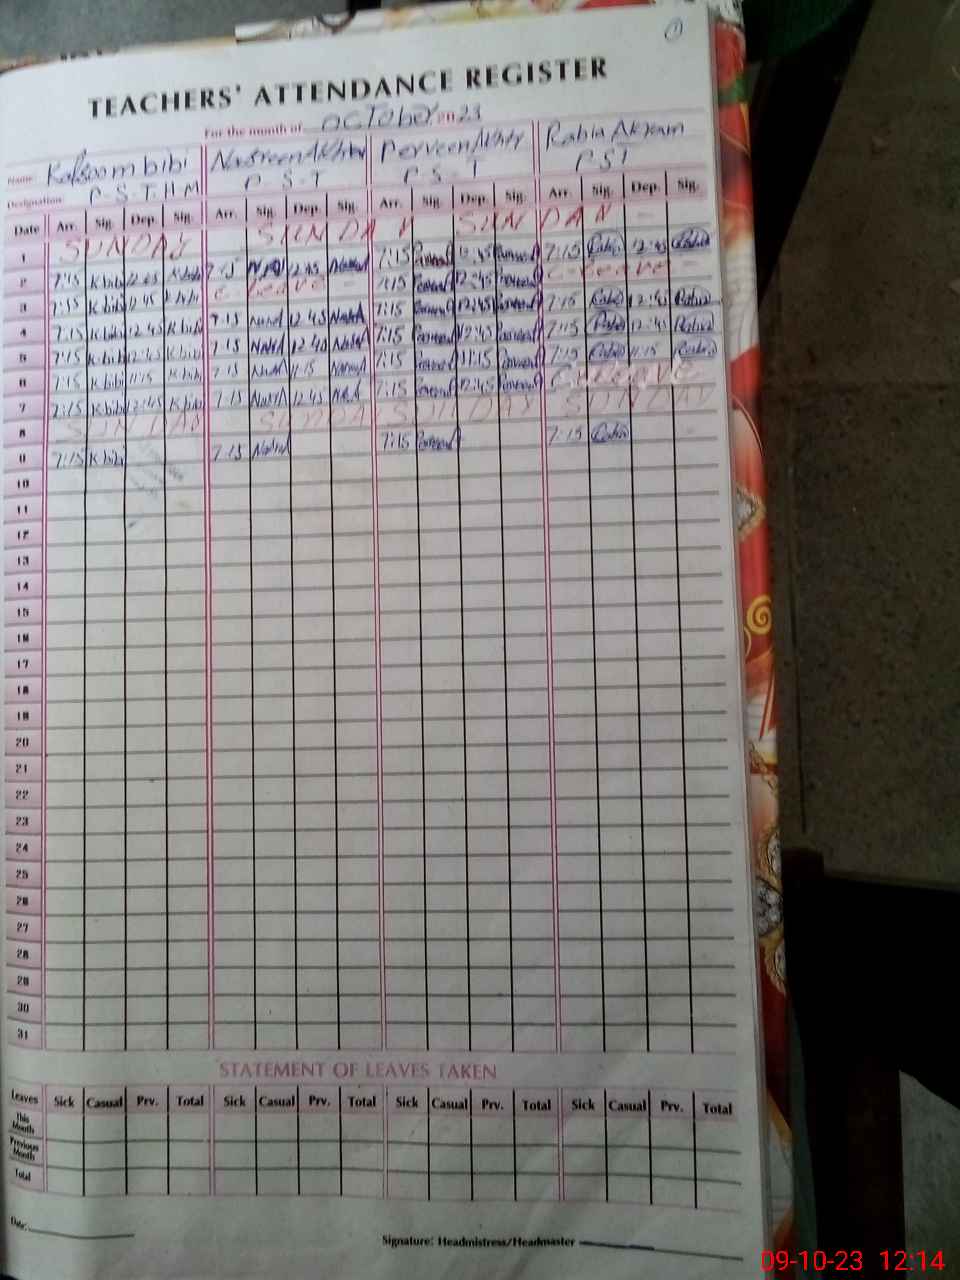 1
TEACHERS' ATTENDANCE REGISTER
For the month of OCTober 2023
Name: Kalsoom bibi Nasreen Akhtar Perveen Akhtr Rabia Akram
Designation: P-S-T HM P-S-T P-S-T PST
Date Arr. Sig. Dep. Sig. Arr. Sig. Dep. Sig. Arr. Sig. Dep. Sig. Arr. Sig. Dep. Sig.
1 SUNDAY SUNDAY SUNDAY
2 7:15 K bibi 12:45 K bibi 7:15 12:45 7:15 12:45 7:15 Rabia 12:45 Rabia
3 7:15 K bibi 12:45 K bibi C-Leave 7:15 12:45 C-Leave
4 7:15 K bibi 12:45 K bibi 7:15 12:45 7:15 12:45 7:15 Rabia 12:45 Rabia
5 7:15 K bibi 12:45 K bibi 7:15 12:45 7:15 12:45 7:15 Rabia 12:45 Rabia
6 7:15 K bibi 11:15 K bibi 7:15 11:15 7:15 11:15 7:15 Rabia 11:15 Rabia
7 7:15 K bibi 12:45 K bibi 7:15 12:45 7:15 12:45 C-Leave
8 SUNDAY SUNDAY SUNDAY SUNDAY
9 7:15 K bibi 7:15 7:15 7:15 Rabia
10
11
12
13
14
15
16
17
18
19
20
21
22
23
24
25
26
27
28
29
30
31
STATEMENT OF LEAVES TAKEN
Leaves Sick Casual Prv. Total Sick Casual Prv. Total Sick Casual Prv. Total Sick Casual Prv. Total
This Month
Previous Month
Total
Date:
Signature: Headmistress/Headmaster
09-10-23 12:14